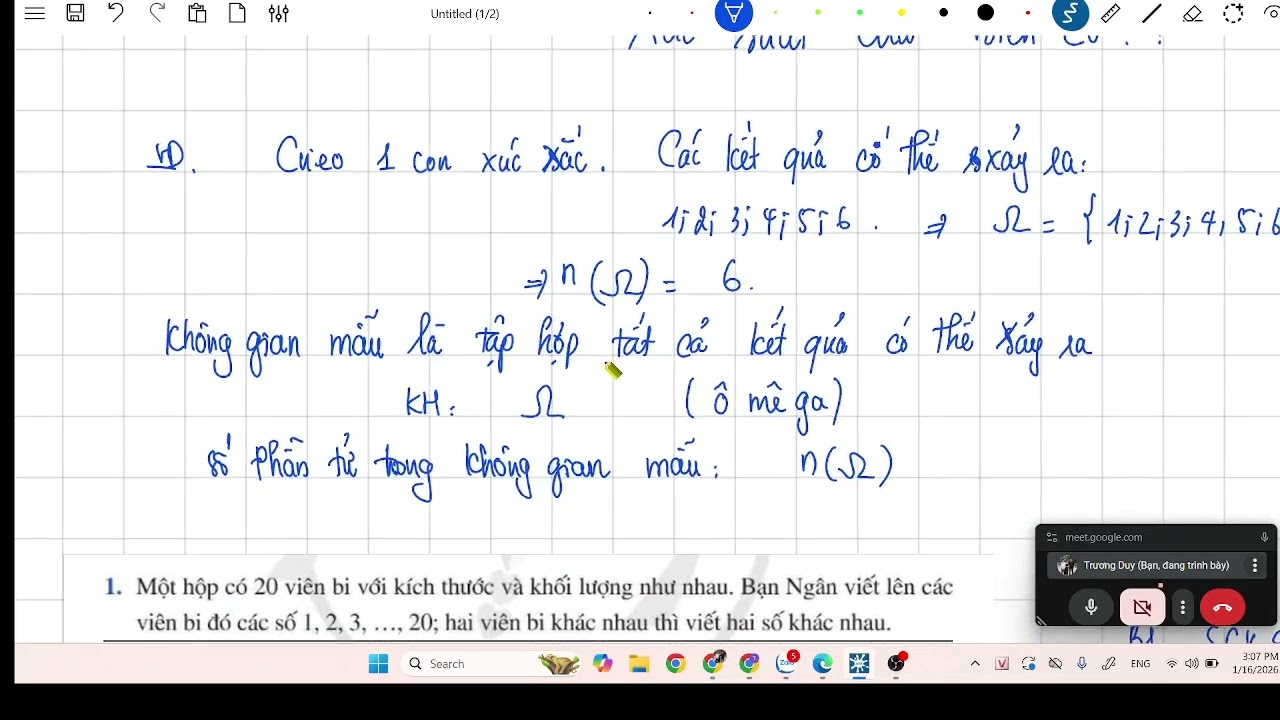 Untitled (1/2)
VD. Gieo 1 con xúc xắc. Các kết quả có thể xảy ra:
1; 2; 3; 4; 5; 6. ⇒ Ω = { 1; 2; 3; 4; 5; 6
⇒ n(Ω) = 6.
Không gian mẫu là tập hợp tất cả kết quả có thể xảy ra
KH: Ω (ô mê ga)
số phần tử trong không gian mẫu: n(Ω)
meet.google.com
Trương Duy (Bạn, đang trình bày)
1. Một hộp có 20 viên bi với kích thước và khối lượng như nhau. Bạn Ngân viết lên các
viên bi đó các số 1, 2, 3, …, 20; hai viên bi khác nhau thì viết hai số khác nhau.
Search
Zalo
5
ENG
3:07 PM
1/16/2026